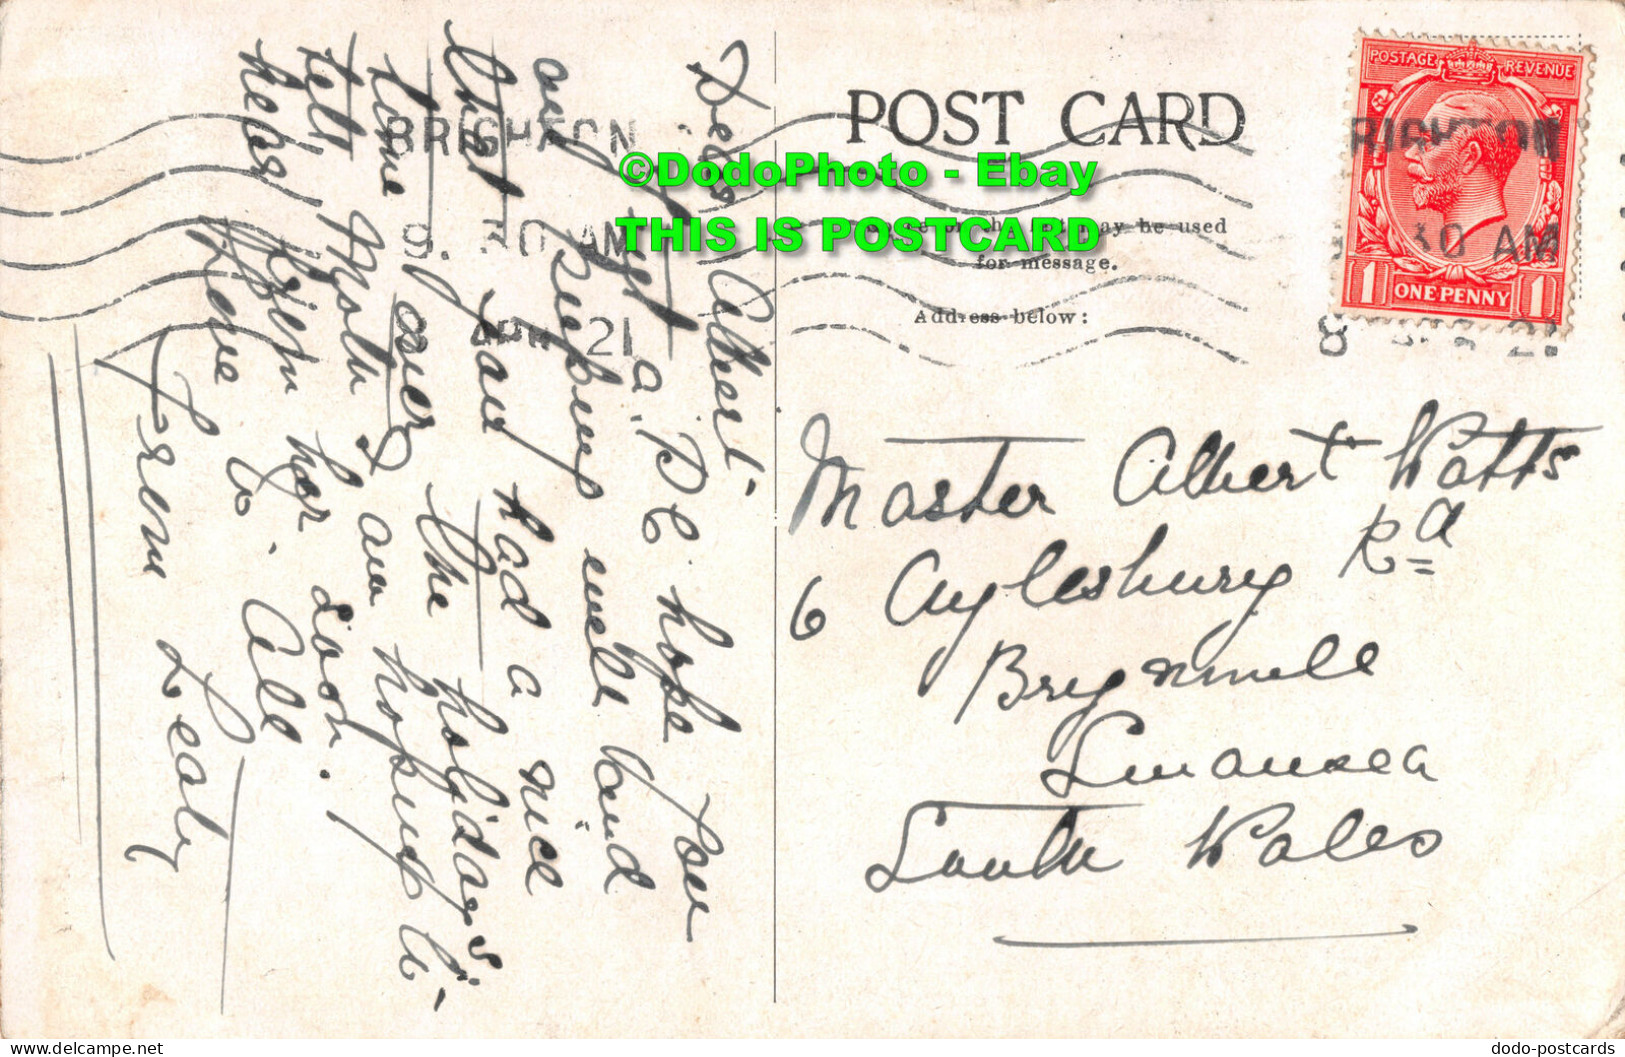 POST CARD
may be used
for message.
Address below:
POSTAGE REVENUE
ONE PENNY
1 1
BRIGHTON
9. 30 AM
8 APR 21
RIGHTON
30 AM
8 21
©DodoPhoto - Ebay
THIS IS POSTCARD
Dear Albert
a P.C hope you
are keeping well and
that you had a nice
time over the holidays.
tell Mother I am hoping to
hear from her soon.
Love to all
From Lealy
Master Albert Watts
6 Aylesbury Rd
Brynmill
Swansea
South Wales
dodo-postcards
www.delcampe.net